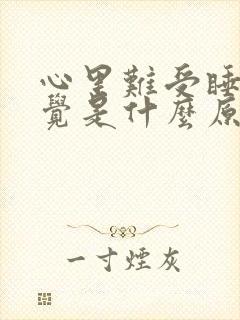 心里難受睡
覺是什麼原
一寸煙灰